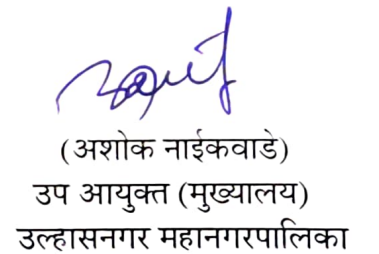 (अशोक नाईकवाडे)
उप आयुक्त (मुख्यालय)
उल्हासनगर महानगरपालिका